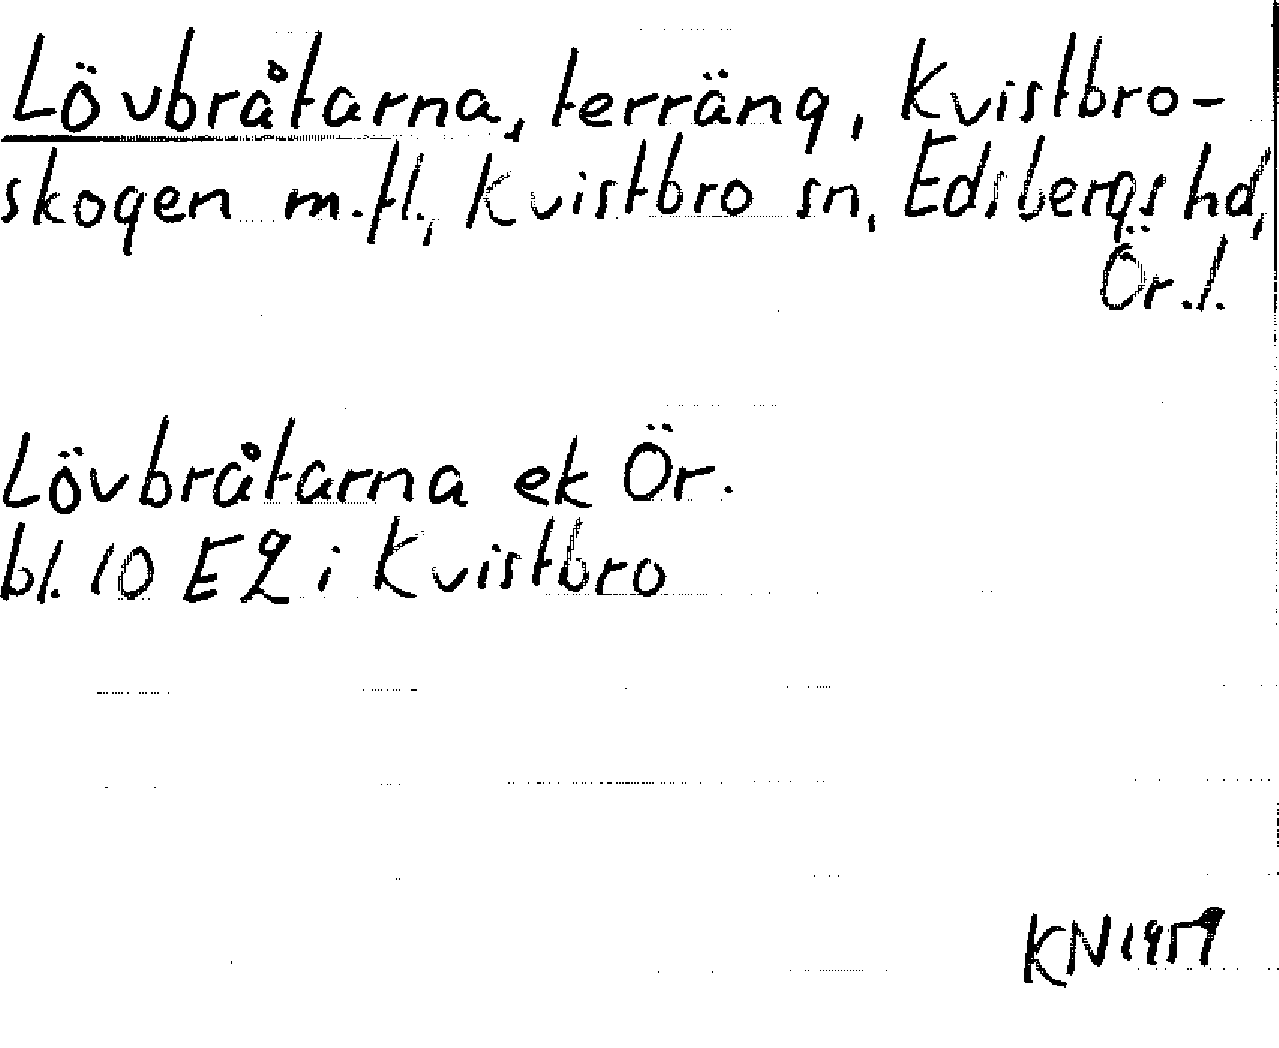 Lövbråtarna, terräng, Kvistbro-
skogen m.fl., Kvistbro sn, Edsbergs hd,
Ör.l.
Lövbråtarna ek Ör.
bl. 10 E2 i Kvistbro
KN 1959